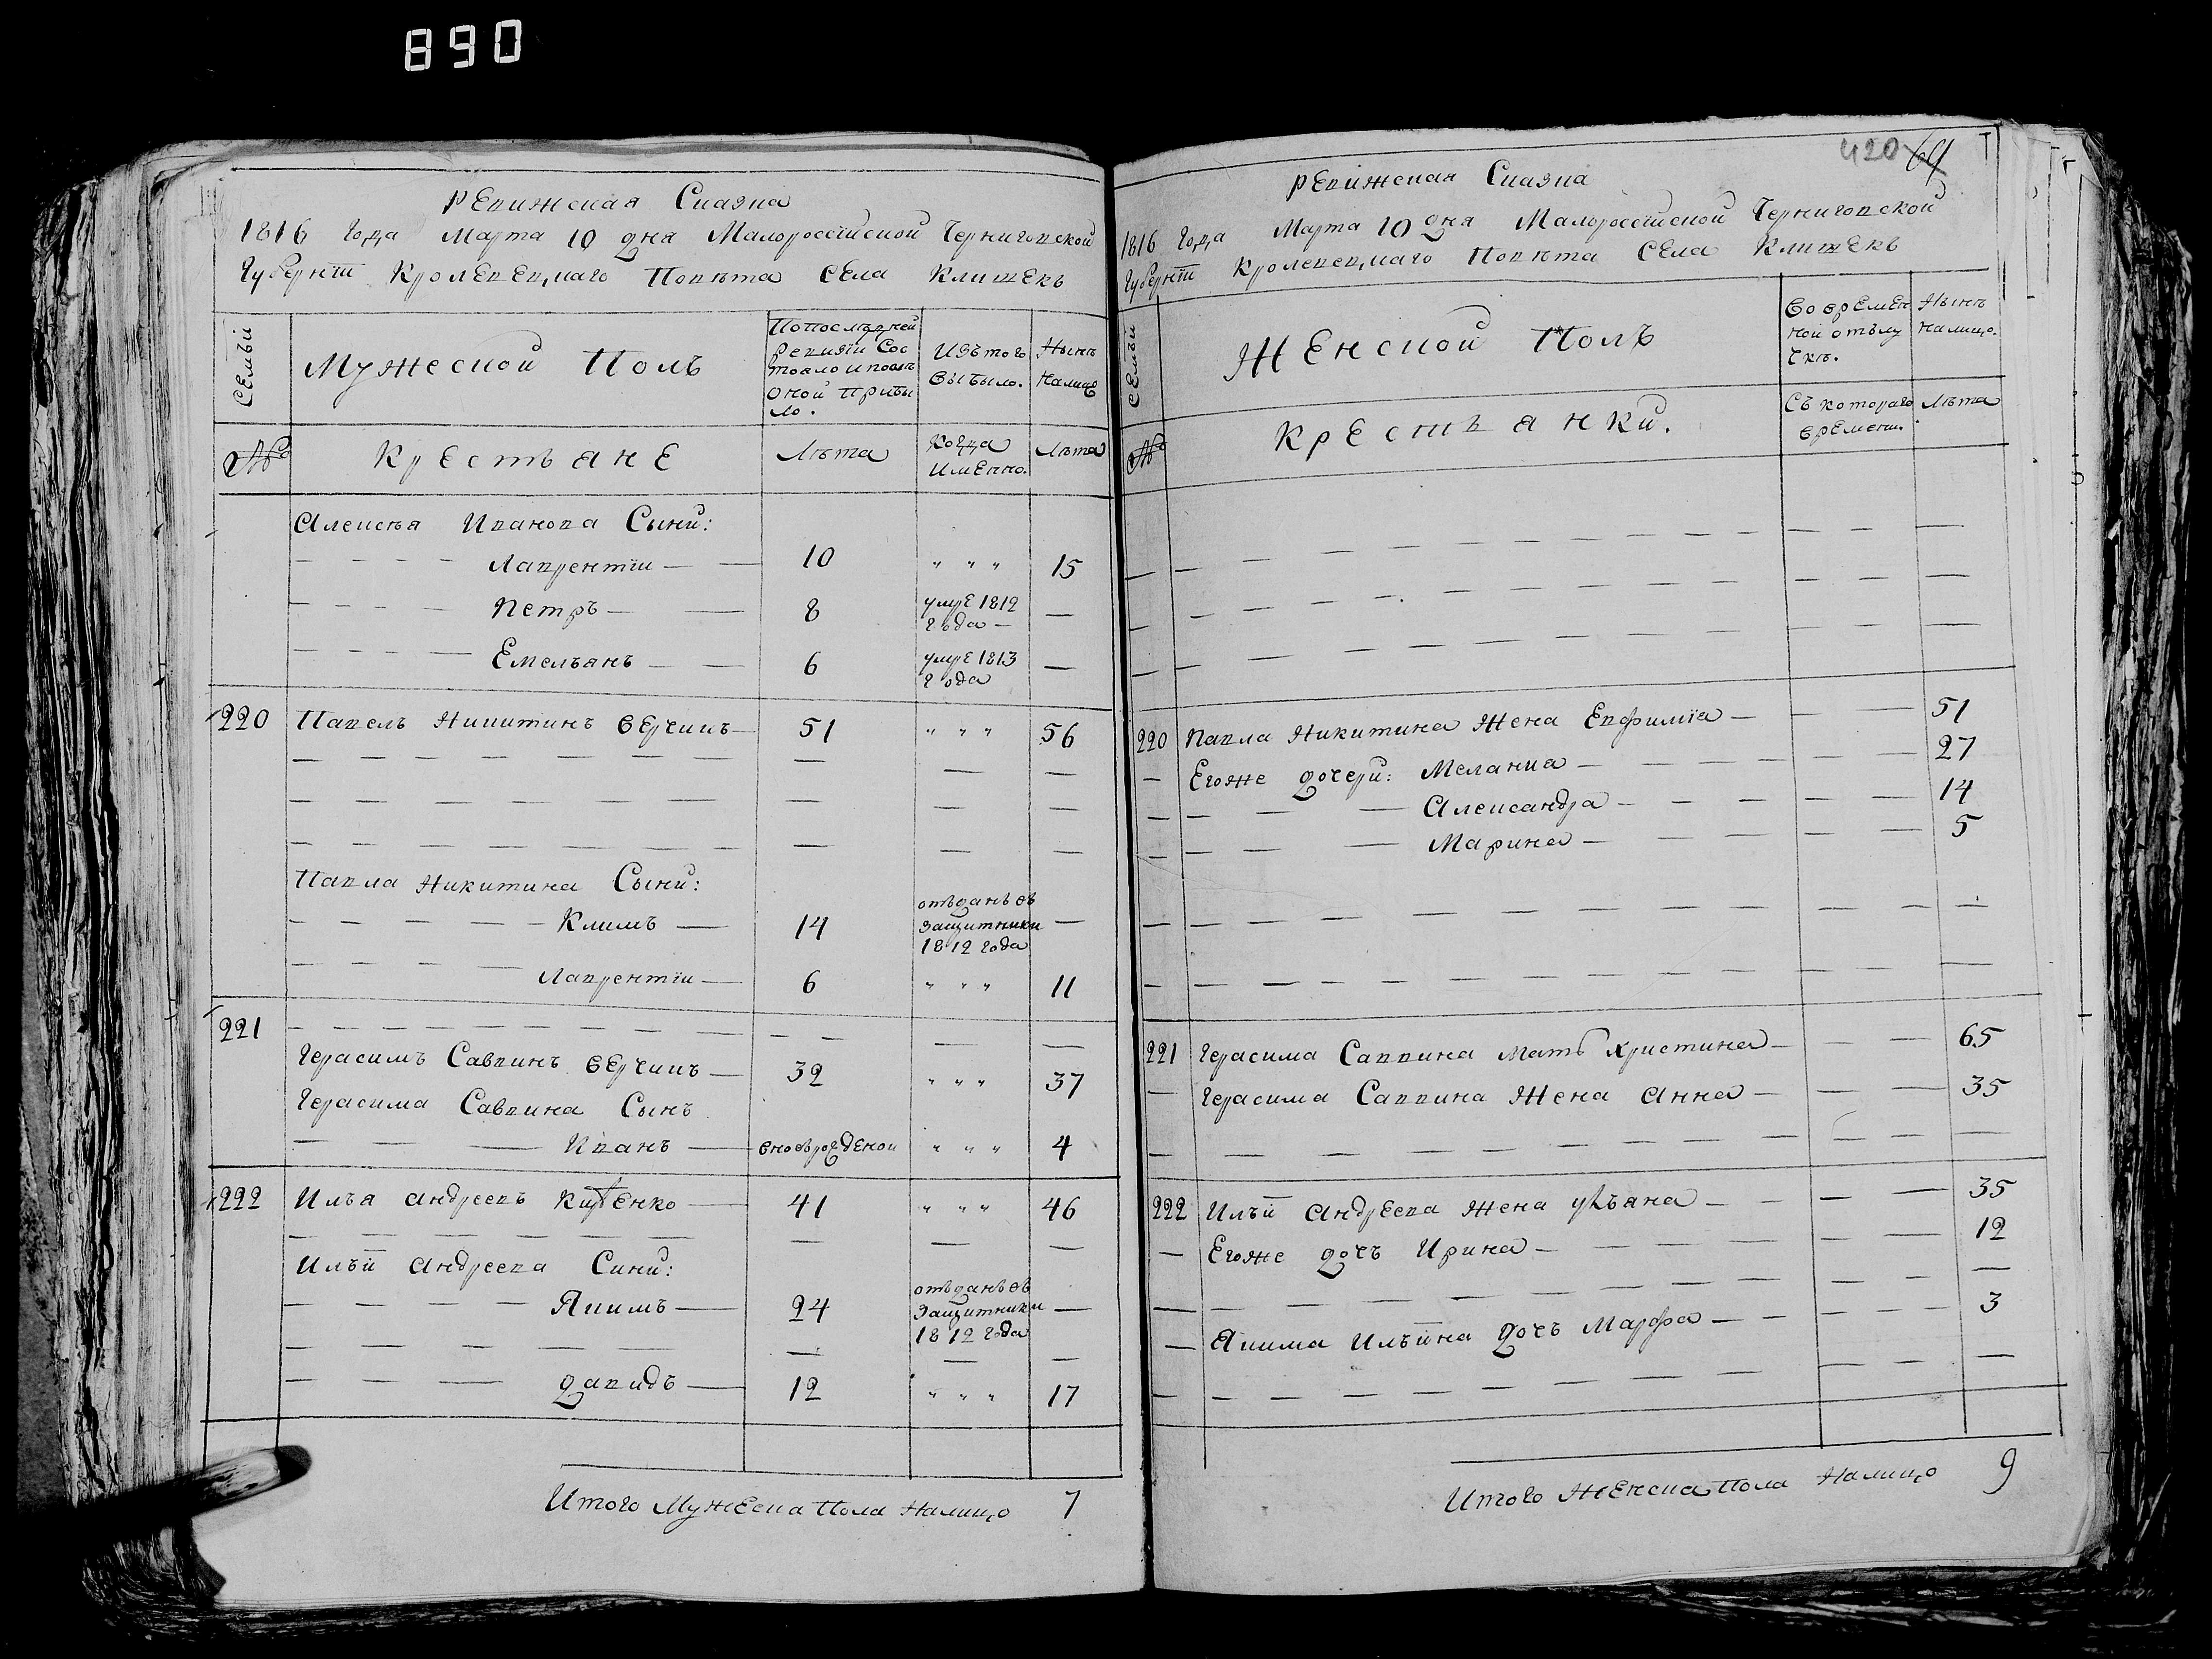 890
Ревижская Сказка
1816 Года Марта 10 дня Малороссійской Черниговской
Губерніи Кролевецкаго Повѣта Села Клишекъ
Семъи
Мужеской Полъ
По последней
ревизіи Сос
тояло и послѣ
оной прибы
ло.
Изъ того
выбыло.
Нынѣ
налицо
№
Крестьяне
Лѣта
Когда
Именно.
Лѣта
Алексѣя Иванова Сыни:
Лаврентіи 10 " " " 15
Петръ 8 умре 1812
года
Емелъянъ 6 умре 1813
года
220 Павелъ Никитинъ Верчикъ 51 " " " 56
Павла Никитина Сыни:
Климъ 14 отъданъ въ
защитники
1812 года
Лаврентіи 6 " " " 11
221
Герасимъ Саввинъ Верчикъ 32 " " " 37
Герасима Саввина Сынъ
Иванъ вновърожденои " " " 4
222 Илъя Андреевъ 41 " " " 46
Илъи Андреева Сини:
Якимъ 24 отъданъ въ
защитники
1812 года
Давидъ 12 " " " 17
Итого Мужеска Пола Налицо 7
420 64
Ревижская Сказка
1816 Года Марта 10 дня Малороссійской Черниговской
Губерніи Кролевецкаго Повѣта Села Клишекъ
Семъи
Женской Полъ
Во времен
ной отълу
чкѣ.
Нынѣ
налицо.
№
Крестьянки.
Съ котораго
времени.
Лѣта
220 Павла Никитина Жена Евфимія 51
Егоже дочери: Мелания 27
Александра 14
Марина 5
221 Герасима Саввина Мать Христина 65
Герасима Саввина Жена Анна 35
222 Илъи Андреева Жена Улъяна 35
Егоже дочъ Ирина 12
Якима Илъина дочъ Марфа 3
Итого Женска Пола Налицо 9